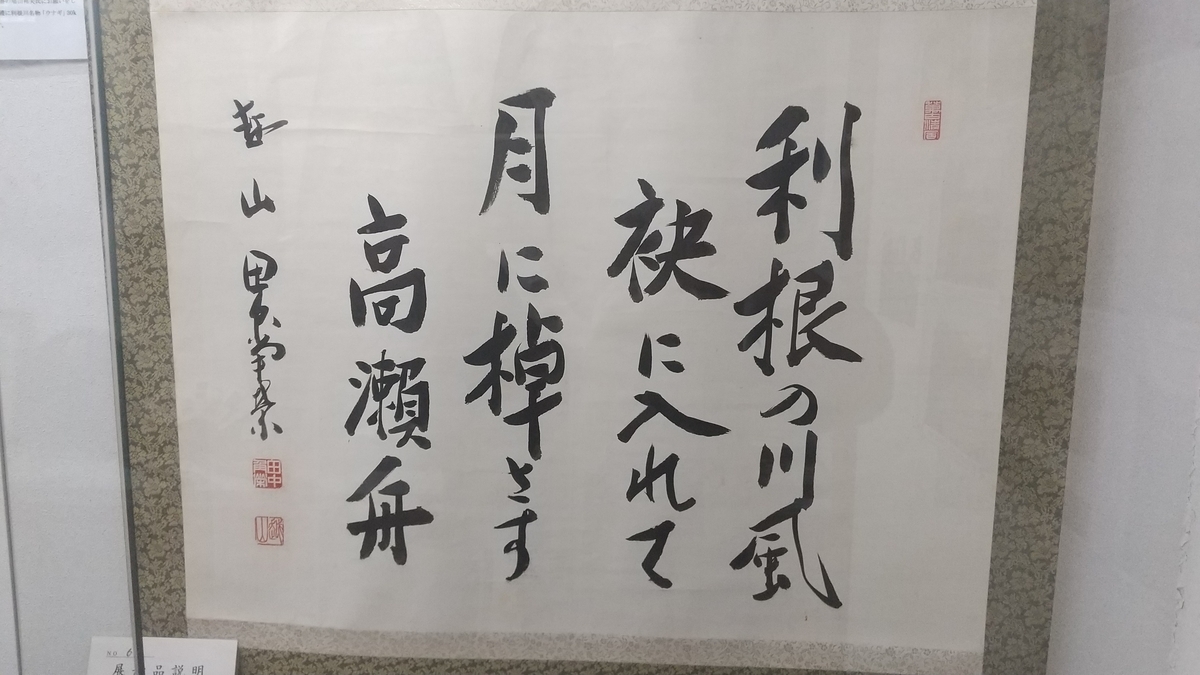 利根の川風
袂に入れて
月に棹さす
高瀬舟
山 田
田中
NO 6
展 品説明